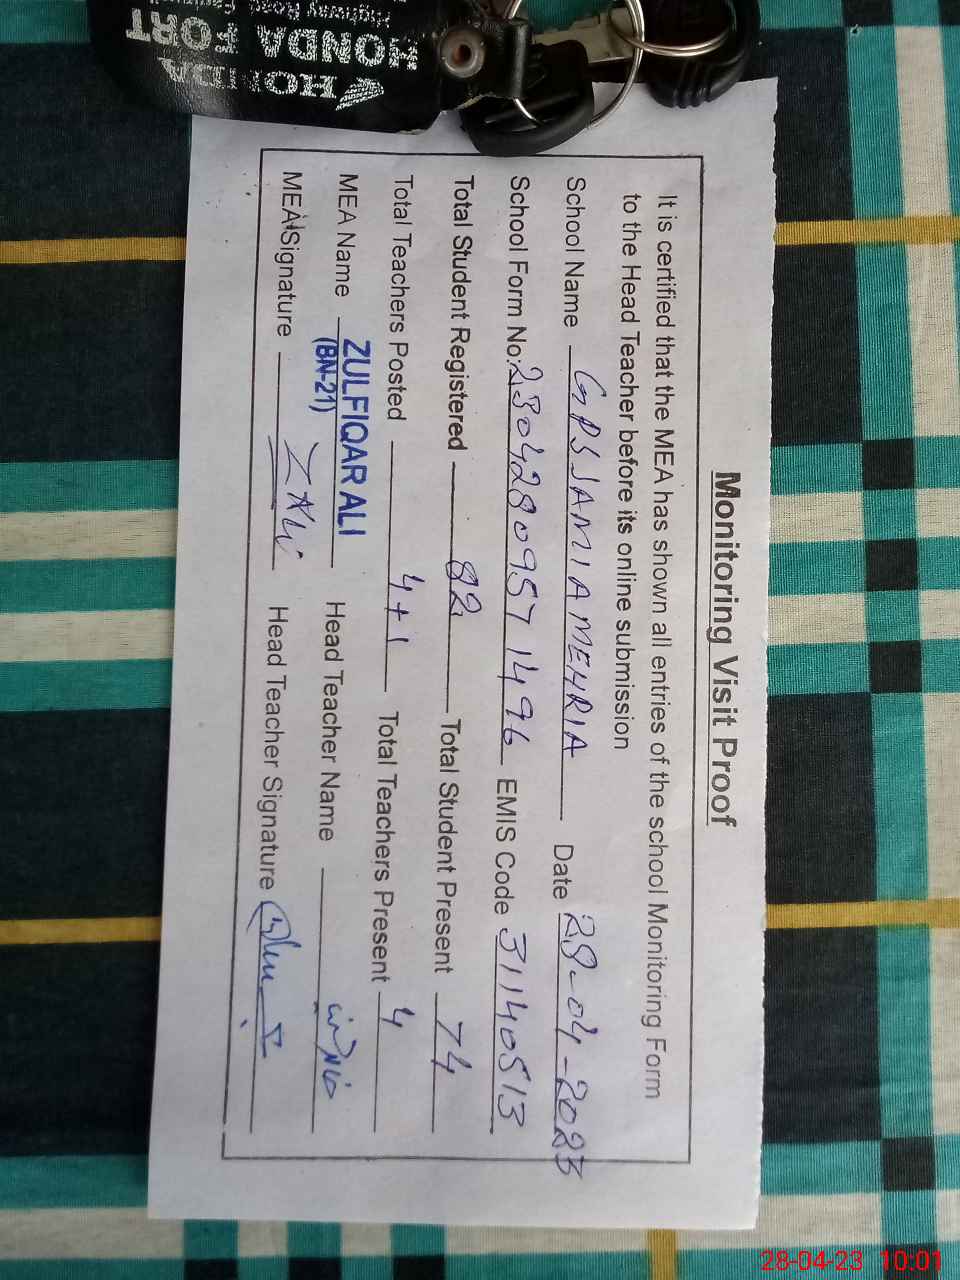 Monitoring Visit Proof
It is certified that the MEA has shown all entries of the school Monitoring Form
to the Head Teacher before its online submission
School Name GPS JAMIA MEHRIA Date 28-04-2023
School Form No: 23042809571496 EMIS Code 31140513
Total Student Registered 82 Total Student Present 74
Total Teachers Posted 4+1 Total Teachers Present 4
MEA Name ZULFIQAR ALI Head Teacher Name
(BN-21)
MEA Signature Head Teacher Signature
HONDA
HONDA
FORT
Highway Road
28-04-23 10:01